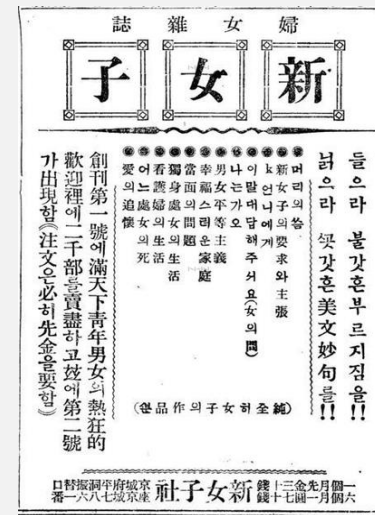 婦女雜誌
新女子
들으라 불갓흔부르지짐을!!
닑으라 ᄭᅩᆺ갓흔美文妙句를!!
●머리의
●新女子의要求와主張
●K언니에게
●이말대답해주서요(女의問)
●나는가오
●男女平等主義
●幸福스러운家庭
●當面의問題
●獨身處女의生活
●看護婦의生活
●어느處女의死
●愛의追懷
(純全히女子의作品만)
創刊第一號에滿天下靑年男女의熱狂的
歡迎裡에二千部를賣盡하고玆에第二號
가出現함(注文은必히先金을要함)
一個月先金三十錢
六個月一圓七十錢
新女子社
京城府平洞振替口
座京城七八六一番